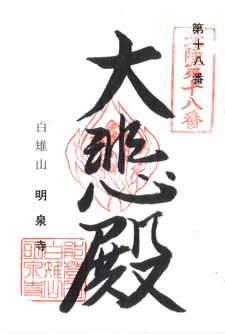 第十八番
北陸第十八番
大悲殿
白雉山 明泉寺
白雉山
明泉寺